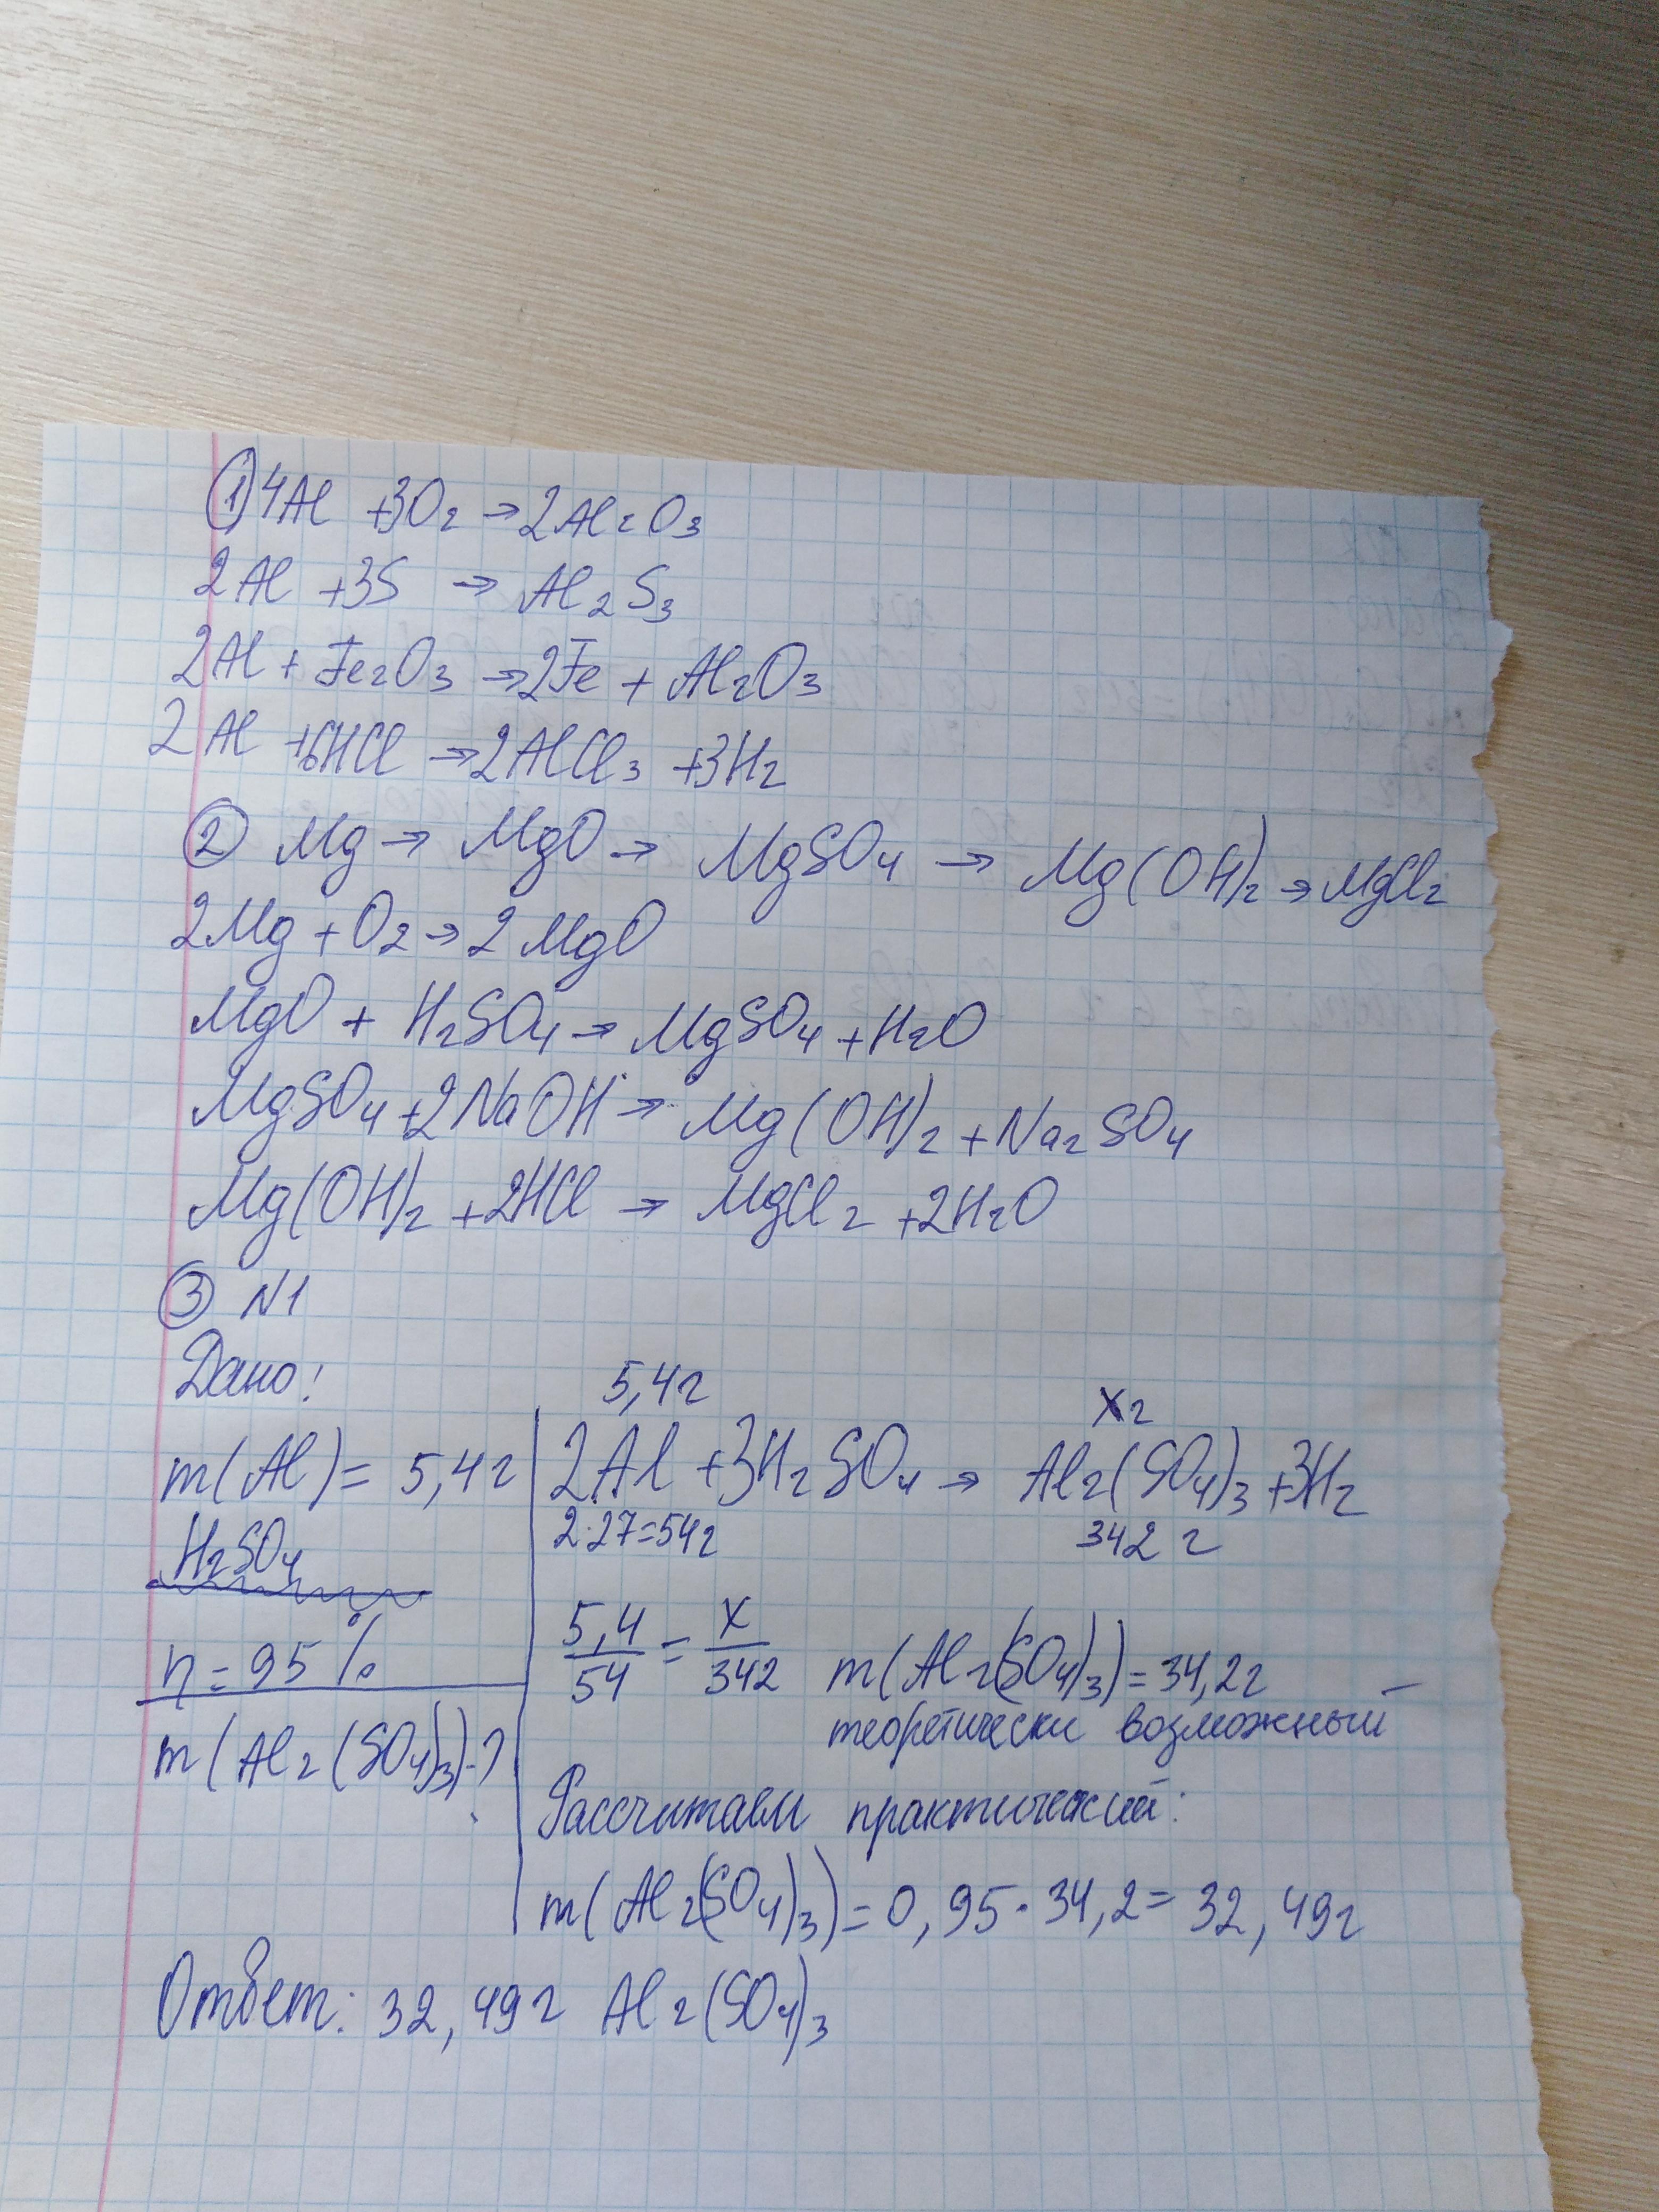 ① 4Al + 3O₂ → 2Al₂O₃
2Al + 3S → Al₂S₃
2Al + Fe₂O₃ → 2Fe + Al₂O₃
2Al + 6HCl → 2AlCl₃ + 3H₂
② Mg → MgO → MgSO₄ → Mg(OH)₂ → MgCl₂
2Mg + O₂ → 2MgO
MgO + H₂SO₄ → MgSO₄ + H₂O
MgSO₄ + 2NaOH → Mg(OH)₂ + Na₂SO₄
Mg(OH)₂ + 2HCl → MgCl₂ + 2H₂O
③ N1
Дано:
m(Al) = 5,4г
H₂SO₄
η = 95%
m(Al₂(SO₄)₃) - ?
5,4г xг
2Al + 3H₂SO₄ → Al₂(SO₄)₃ + 3H₂
2·27=54г 342 г
5,4/54 = x/342 m(Al₂(SO₄)₃) = 34,2г
теоретически возможный
Рассчитаем практический:
m(Al₂(SO₄)₃) = 0,95·34,2 = 32,49г
Ответ: 32,49г Al₂(SO₄)₃